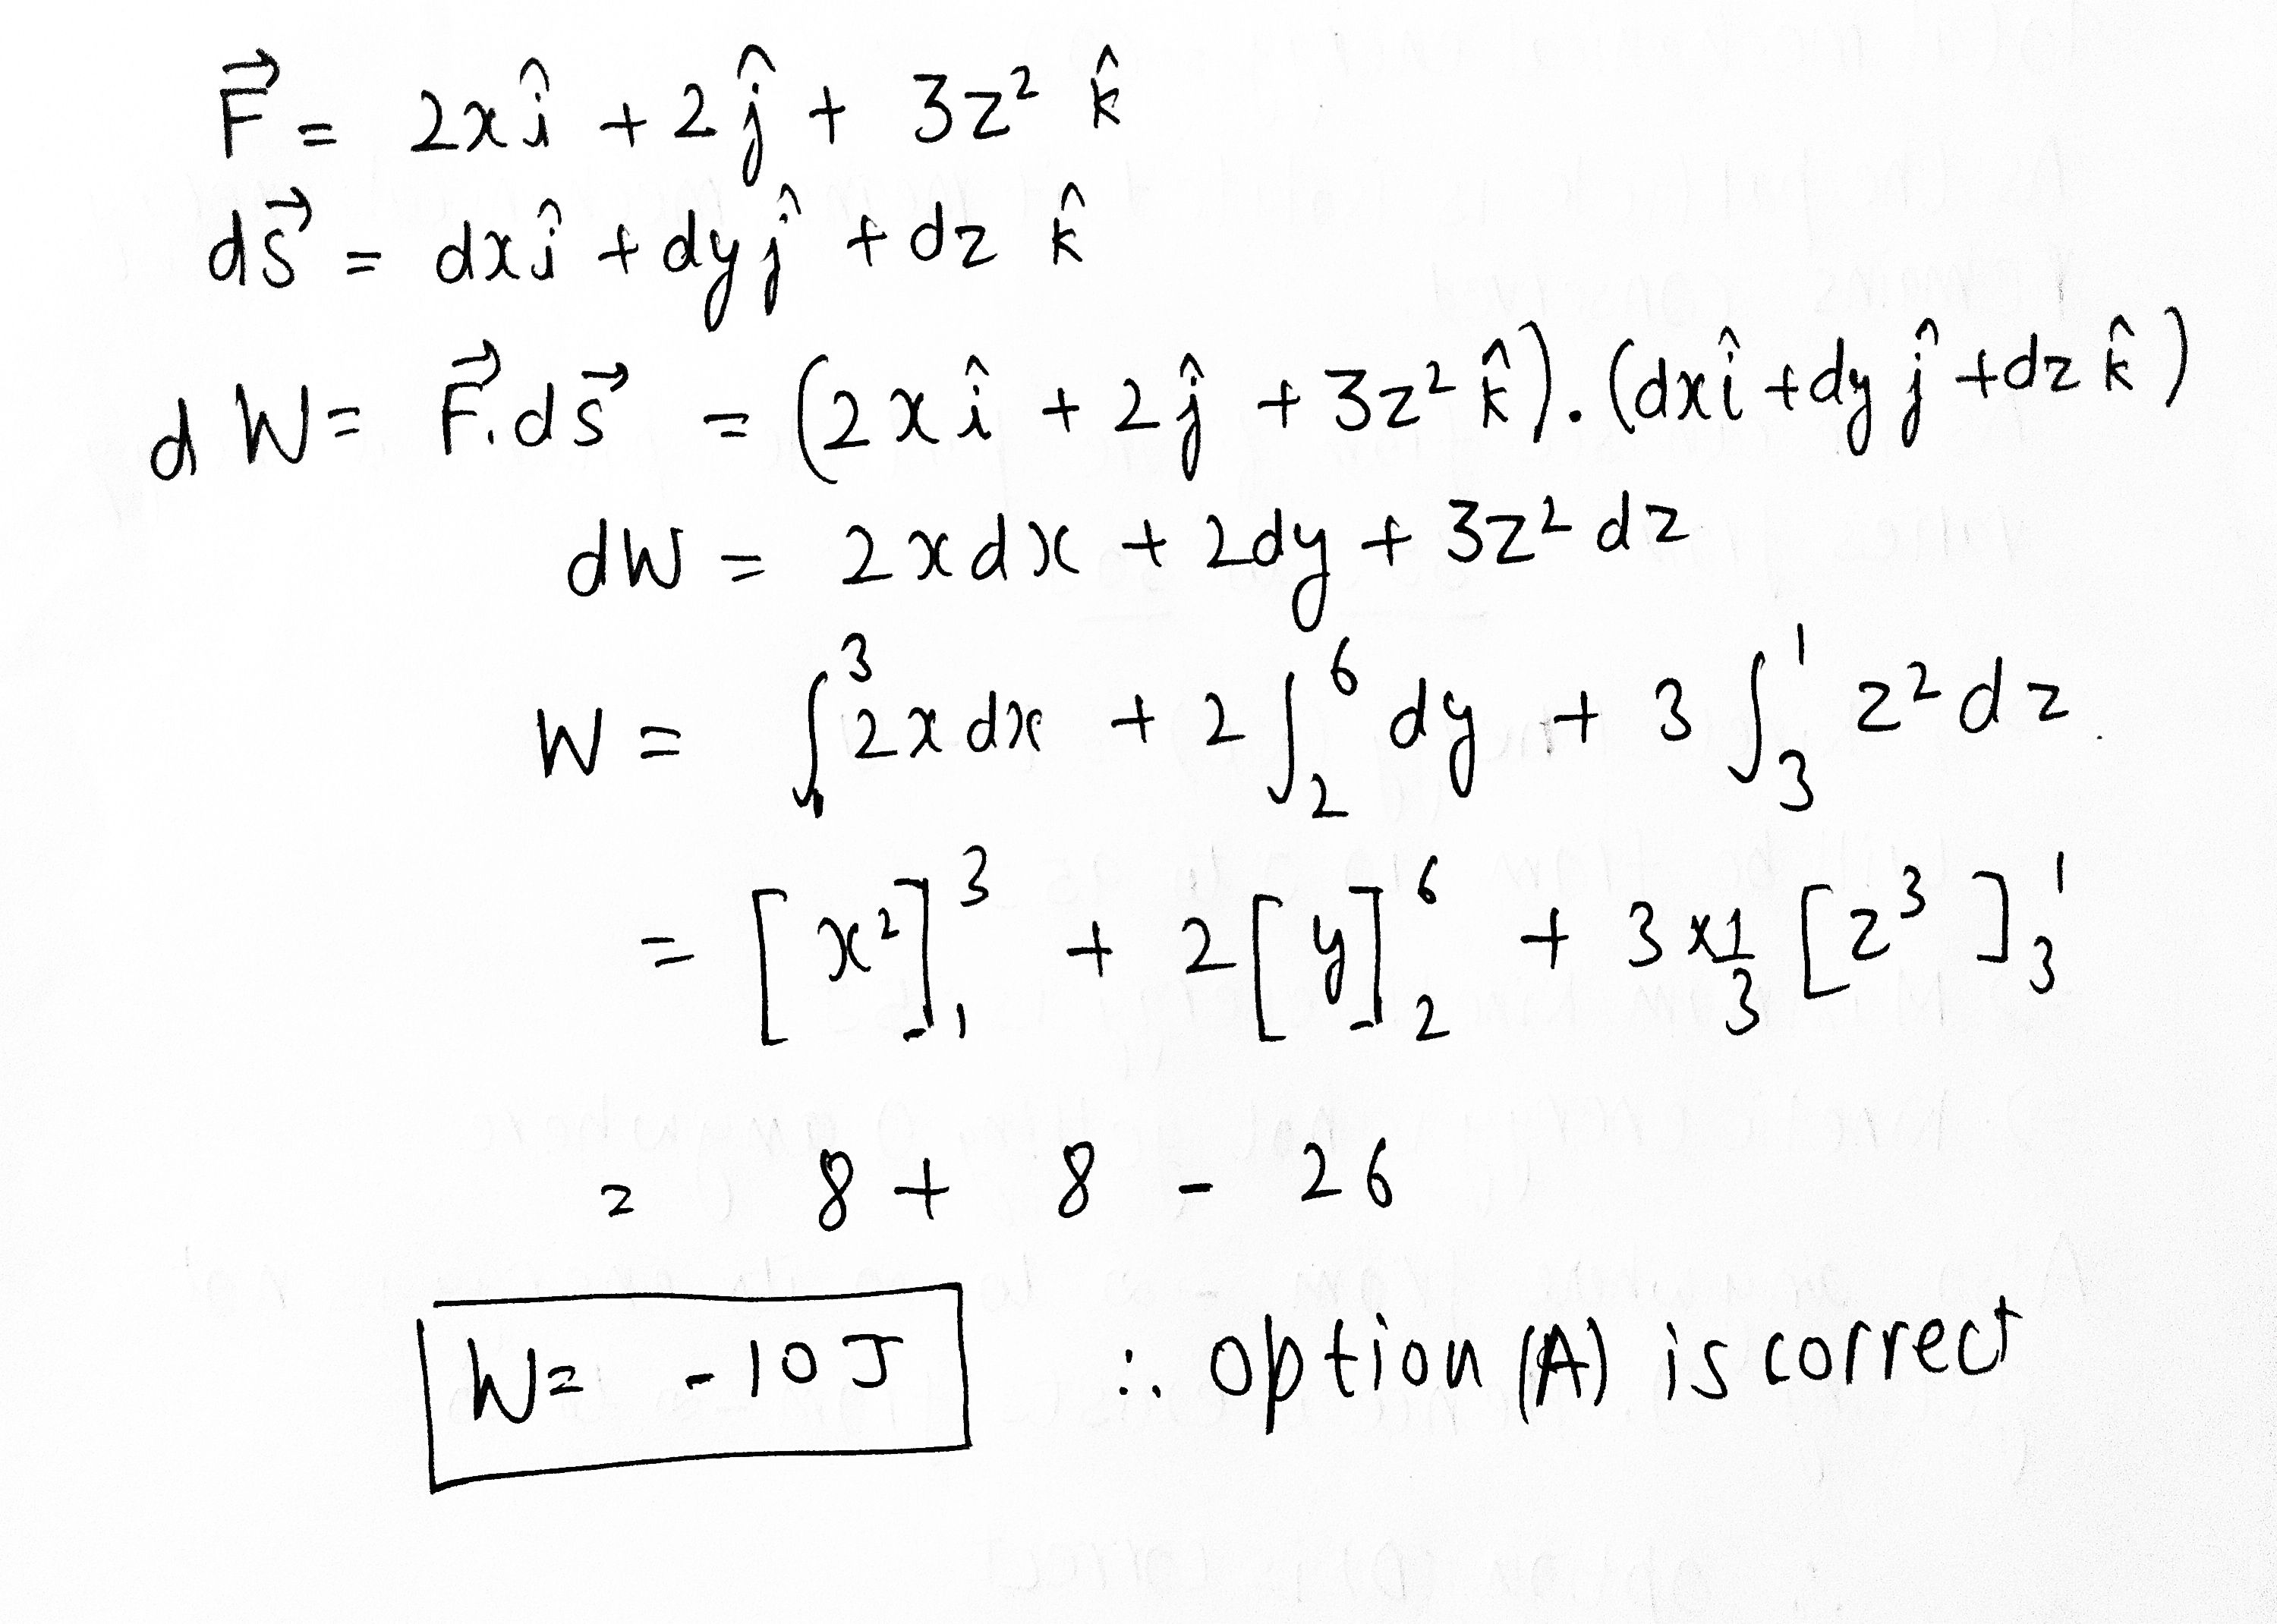 F⃗ = 2xî + 2ĵ + 3z² k̂
ds⃗ = dxî + dyĵ + dz k̂
dW = F⃗.ds⃗ = (2xî + 2ĵ + 3z² k̂).(dxî + dyĵ + dz k̂)
dW = 2xdx + 2dy + 3z² dz
W = ∫₁³ 2x dx + 2∫₂⁶ dy + 3∫₃¹ z² dz
= [x²]₁³ + 2[y]₂⁶ + 3×1/3 [z³]₃¹
= 8 + 8 - 26
W = -10J ∴ option (A) is correct